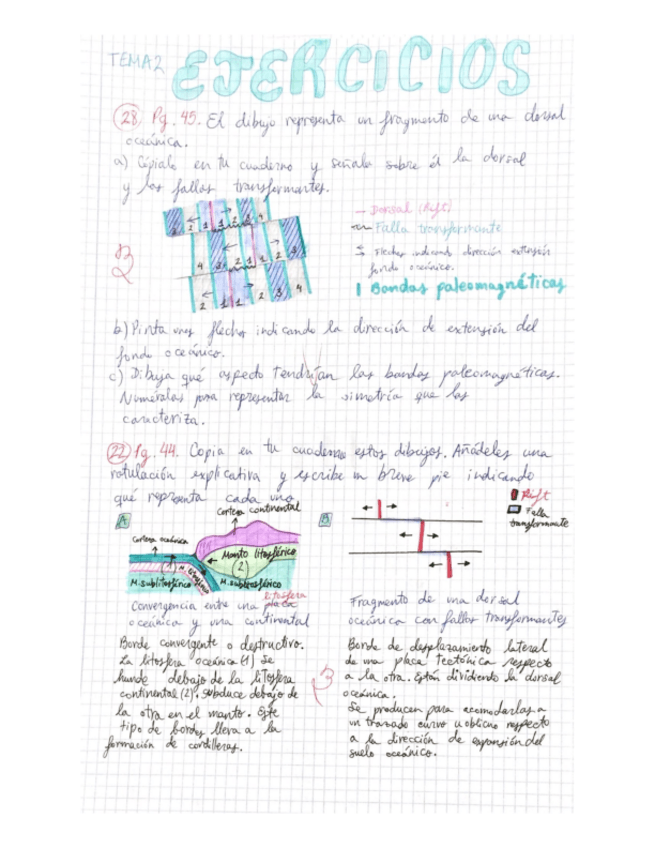 TEMA 2 EJERCICIOS
28 Pg. 45. El dibujo representa un fragmento de una dorsal
oceánica.
a) Cópialo en tu cuaderno y señala sobre él la dorsal
y las fallas transformantes.
Dorsal (Rift)
Falla transformante
Flechas indicando dirección extensión
fondo oceánico.
Bandas paleomagnéticas
4 2 1 1 2 3 4
4 3 2 1 1 2 3
2 1 1 2 3 4
b) Pinta unas flechas indicando la dirección de extensión del
fondo oceánico.
c) Dibuja qué aspecto tendrían las bandas paleomagnéticas.
Numéralas para representar la simetría que las
caracteriza.
22 Pg. 44. Copia en tu cuaderno estos dibujos. Añádeles una
rotulación explicativa y escribe un breve pie indicando
qué representa cada uno.
A
Corteza continental
Corteza oceánica
Manto litosférico
1
2
M. litosférico
M. sublitosférico
M. sublitosférico
B
Rift
Falla
transformante
litosfera
Convergencia entre una placa
oceánica y una continental
Borde convergente o destructivo.
La litosfera oceánica (1) se
hunde debajo de la litosfera
continental (2). Subduce debajo de
la otra en el manto. Este
tipo de bordes lleva a la
formación de cordilleras.
Fragmento de una dorsal
oceánica con fallas transformantes
Borde de desplazamiento lateral
de una placa tectónica respecto
a la otra. Están dividiendo la dorsal
oceánica.
Se producen para acomodarlas a
un trazado curvo u oblicuo respecto
a la dirección de expansión del
suelo oceánico.